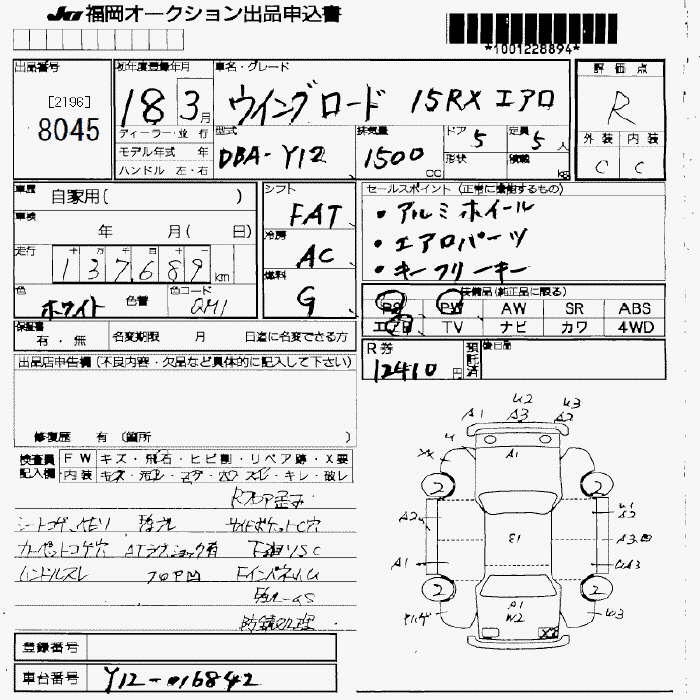 JU 福岡オークション出品申込書
*1001228894*
出品番号
[2196]
8045
初年度登録年月
18 3月
車名・グレード
ウイングロード 15RX エアロ
評価点
R
外装 内装
C C
ディーラー・並行
モデル年式 年
ハンドル 左・右
型式
DBA-Y12
排気量
1500 CC
ドア
5
形状
定員
5人
積載
kg
車歴
自家用( )
車検
年 月( 日)
走行
十 万 千 百 十 一
137689 km
色
ホワイト 色替
色コード
QM1
シフト
FAT
冷房
AC
燃料
G
セールスポイント (正常に機能するもの)
・アルミホイール
・エアロパーツ
・キーフリーキー
装備品(純正品に限る)
PS PW AW SR ABS
エアB TV ナビ カワ 4WD
保証書
有・無
名変期限 月 日迄に名変できる方
R券
12410円
預託済
後日品
出品店申告欄 (不良内容・欠品など具体的に記入して下さい)
修復歴 有 (箇所 )
検査員記入欄
FW キズ・飛石・ヒビ割・リペア跡・X要
内装 キズ・汚レ・コゲ・穴・スレ・キレ・破レ
Rフロア歪み
シートコゲ
カーペットコゲ穴 ATショック有 下廻りSC
ハンドルスレ
防錆処理
U2
A1 A3 U3
A2
U
A1
XX
2 2
A2 U1
A2
E1 A3
A1 UA3
2 2
A1
W2
X2
U3
登録番号
車台番号
Y12-016842